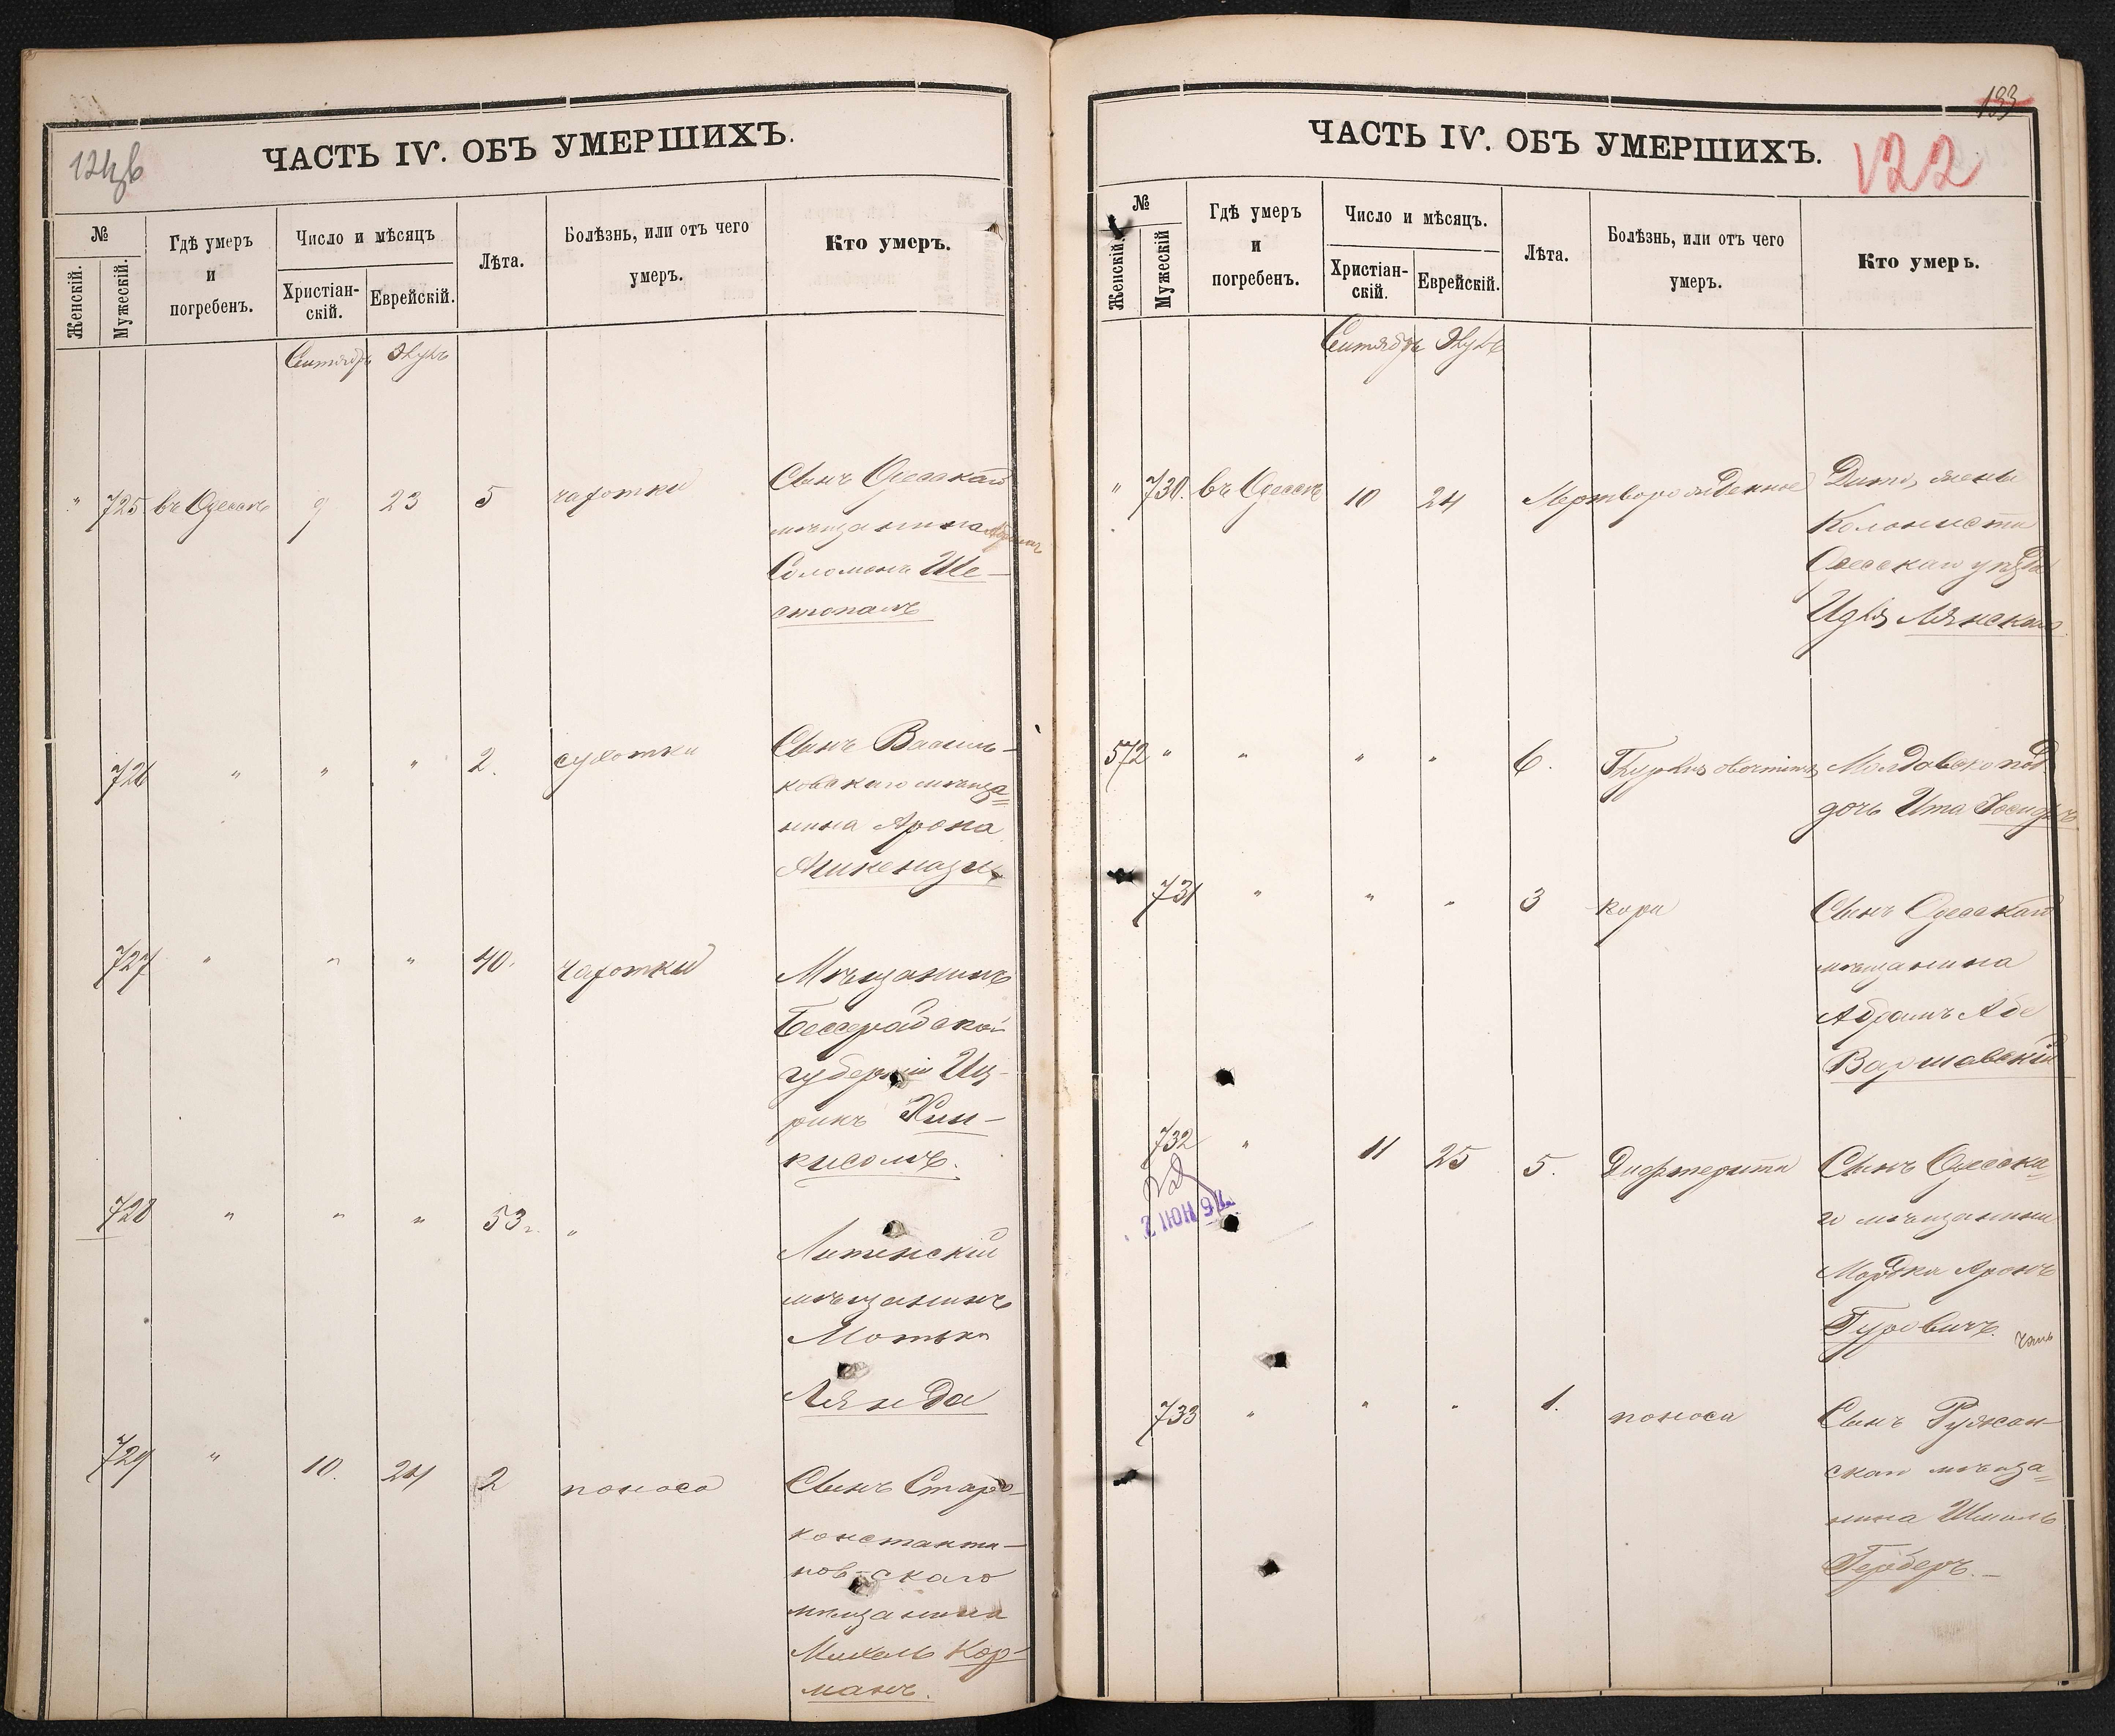 ЧАСТЬ IV. ОБЪ УМЕРШИХЪ.
№
Женскій.
Мужескій.
Гдѣ умеръ
и
погребенъ.
Число и мѣсяцъ
Христіан-
скій.
Еврейскій.
Лѣта.
Болѣзнь, или отъ чего
умеръ.
Кто умеръ.
Сентябрь Элулъ
" 725 въ Одессѣ 9 23 5 чахотки Сынъ Одесскаго
мѣщанина
Соломонъ Ше-
стопалъ
726 " " " 2. сухотки Сынъ Василь-
ковскаго мѣща=
нина Арона
Ашкенази
727 " " " 40. чахотки Мѣщанинъ
Бессерабской
губерніи Иц-
рикъ Хин-
кисолъ.
728 " " " 53 г. " Литинскій
мѣщанинъ
Мотька
Лянда
729 " 10. 24 2 поноса Сынъ Старо-
константи-
нов-скаго
мѣщанина
Михель Кор-
манъ.
133
ЧАСТЬ IV. ОБЪ УМЕРШИХЪ.
122
№
Женскій.
Мужескій
Гдѣ умеръ
и
погребенъ.
Число и мѣсяцъ.
Христіан-
скій.
Еврейскій.
Лѣта.
Болѣзнь, или отъ чего
умеръ.
Кто умеръ.
Сентябрь Элулъ
" 730. въ Одессѣ 10 24 Мертворожденное Дитя, жены
Колониста
Одесскаго уѣзда
Лянскаго
572 " " " " 6. Молдавско под.
дочь Ита Іосифъ
731 " " " 3 кори Сынъ Одесскаго
мѣщанина
Абрамъ Абе
Варшавскій
732 " 11 25 5. Дифтерита Сынъ Одесска=
го мѣщанина
Мордко Аронъ
Гуровичъ.
733 " " " 1. поноса Сынъ Ружан
скаго мѣща=
нина Шмиль
Герберъ. -